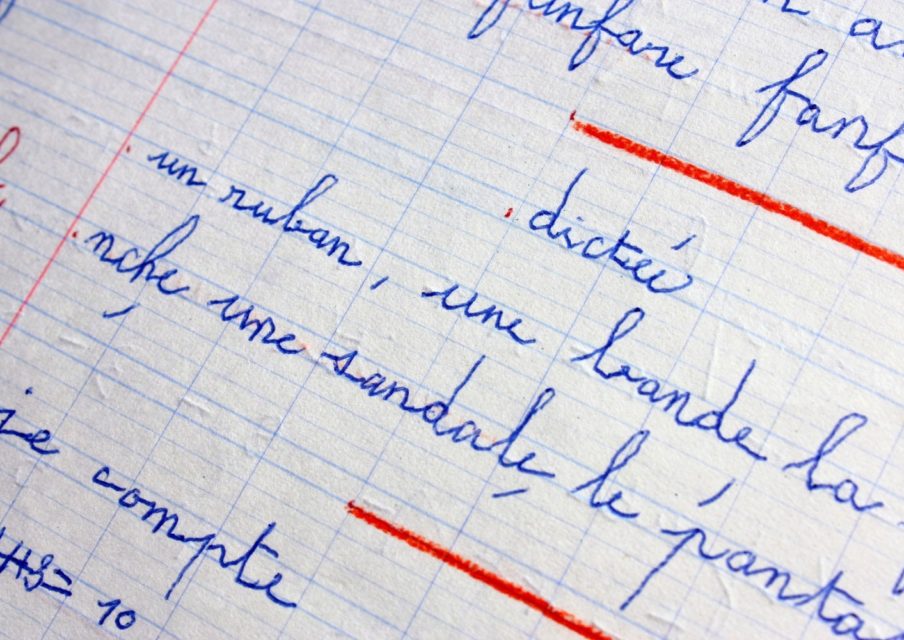 fanfare fanf
dictée
un ruban, une bande la
nche une sandale, le panta
je compte
= 10